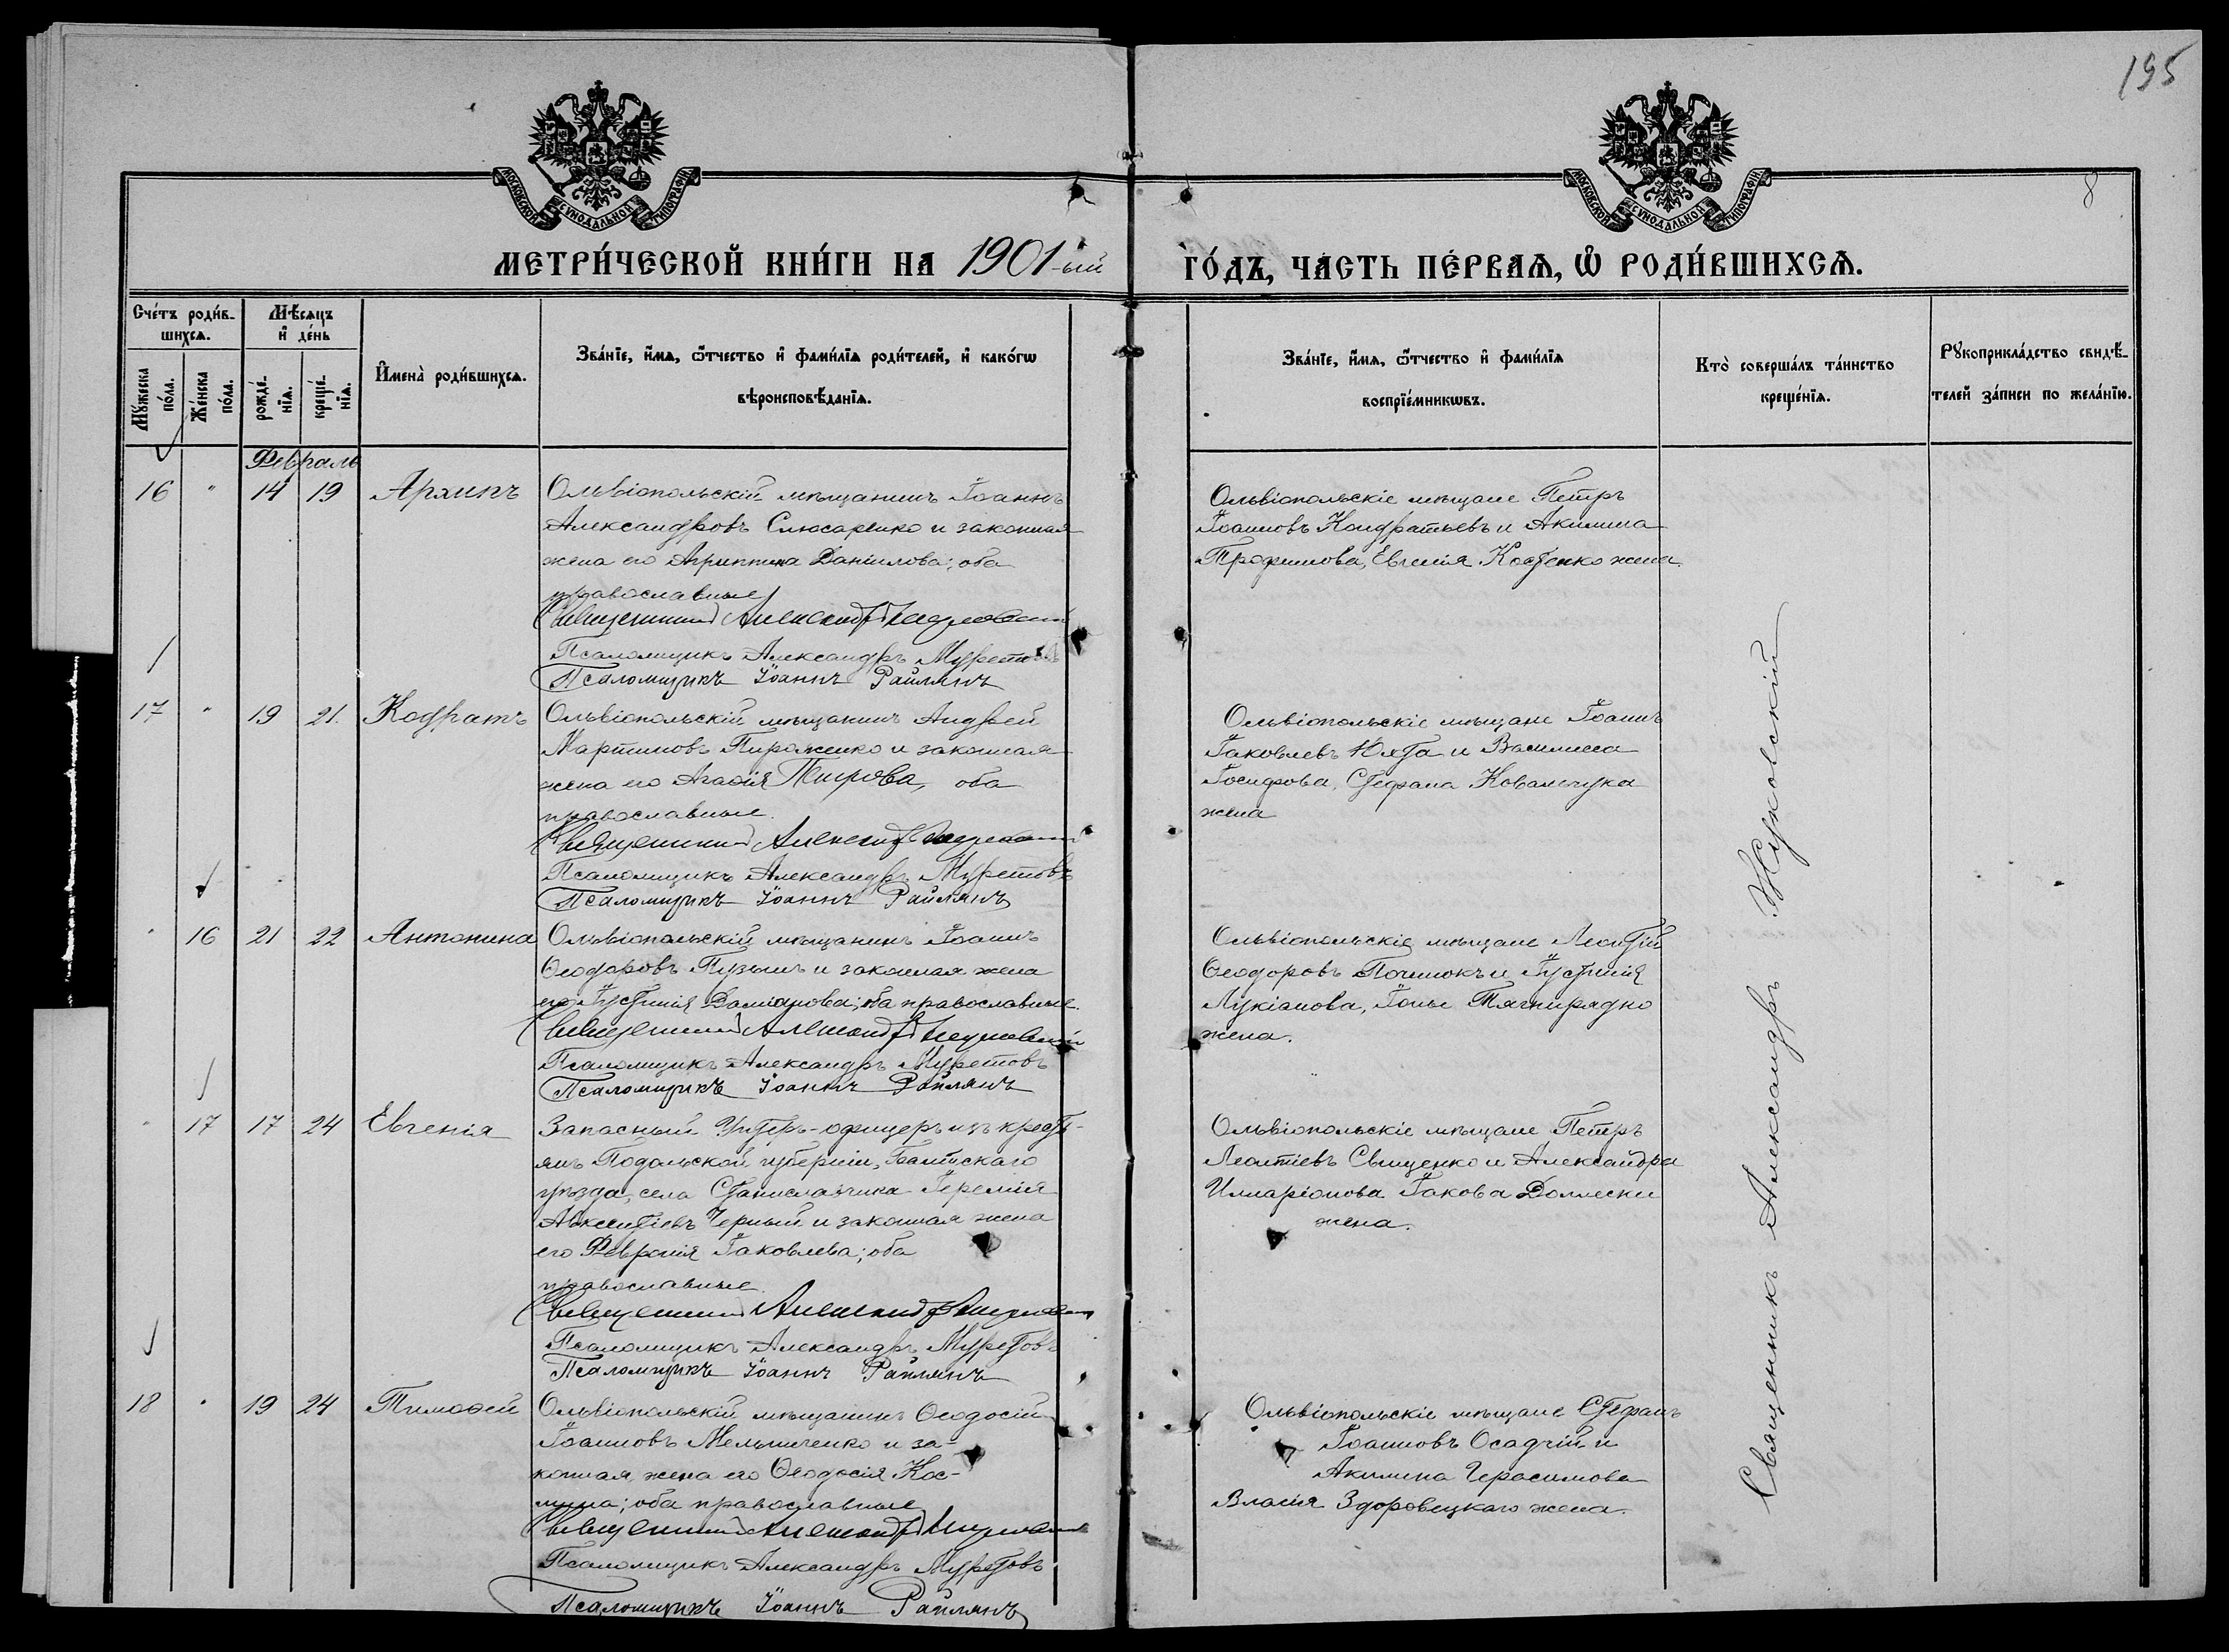 195
8
МОСКОВСКОЙ СѴНОДАЛЬНОЙ ТИПОГРАФІИ
МОСКОВСКОЙ СѴНОДАЛЬНОЙ ТИПОГРАФІИ
МЕТРИ́ЧЕСКОЙ КНИ́ГИ НА 1901-ый ГО́ДЪ, ЧА́СТЬ ПЕ́РВАѦ, Ѡ҆ РОДИ́ВШИХСѦ.
Сче́тъ роди́в-
шихсѧ.
Мꙋ́жеска по́ла.
Же́нска по́ла.
Мѣ́сяцъ и҆ де́нь
рожде́-
нїѧ.
креще́-
нїѧ.
И҆мена̀ роди́вшихсѧ.
Зва́нїе, и҆́мѧ, ѻ҆́тчество и҆ фами́лїѧ роди́телей, и҆ како́гѡ
вѣроисповѣ́данїѧ.
Зва́нїе, и҆́мѧ, ѻ҆́тчество и҆ фами́лїѧ
воспрїе́мникѡвъ.
Кто̀ соверша́лъ та́инство
креще́нїѧ.
Рꙋкоприкла́дство свидѣ́-
телей за́писи по жела́нїю.
Февраль
16 " 14 19 Архипъ
Ольвіопольскій мѣщанинъ Іоаннъ
Александровъ Слюсаренко и законная
жена его Агриппина Даніилова; оба
православные
Священникъ Александръ Жуковскій
Псаломщикъ Александръ Муретовъ
Псаломщикъ Іоаннъ Райлянъ
Ольвіопольскіе мѣщане Петръ
Іоанновъ Кондратьевъ и Акилина
Трофимова, Евгенія Костенко жена
17 " 19 21. Кодратъ
Ольвіопольскій мѣщанинъ Андрей
Мартиновъ Пироженко и законная
жена его Агафія Петрова, оба
православные.
Священникъ Александръ Жуковскій
Псаломщикъ Александръ Муретовъ
Псаломщикъ Іоаннъ Райлянъ
Ольвіопольскіе мѣщане Іоаннъ
Іаковлевъ Юхта и Василисса
Іосифова, Стефана Ковальчука
жена
" 16 21 22 Антонина
Ольвіопольскій мѣщанинъ Іоаннъ
Ѳеодоровъ Пузынъ и законная жена
его Іустинія Даміанова; оба православные.
Священникъ Александръ Жуковскій
Псаломщикъ Александръ Муретовъ
Псаломщикъ Іоаннъ Райлянъ
Ольвіопольскіе мѣщане Леонтій
Ѳеодоровъ Почтокъ и Іустинія
Лукіанова, Іоны Тягнирядно
жена.
" 17 17 24 Евгенія
Запасный Унтеръ-офицеръ изъ кресть-
янъ Подольской губерніи, Балтскаго
уѣзда, села Станиславчика Іеремія
Авксентіевъ Черный и законная жена
его Февронія Іаковлева; оба
православные.
Священникъ Александръ Жуковскій
Псаломщикъ Александръ Муретовъ
Псаломщикъ Іоаннъ Райлянъ
Ольвіопольскіе мѣщане Петръ
Леонтіевъ Свищенко и Александра
Илларіонова Іакова
жена.
18 " 19 24 Тимоѳей
Ольвіопольскій мѣщанинъ Ѳеодосій
Іоанновъ Мельниченко и за-
конная жена его Ѳеодосія Кос-
мина; оба православные
Священникъ Александръ Жуковскій
Псаломщикъ Александръ Муретовъ
Псаломщикъ Іоаннъ Райлянъ
Ольвіопольскіе мѣщане Стефанъ
Іоанновъ Осадчій и
Акилина Герасимова
Власія Здоровецкаго жена.
Священникъ Александръ Жуковскій